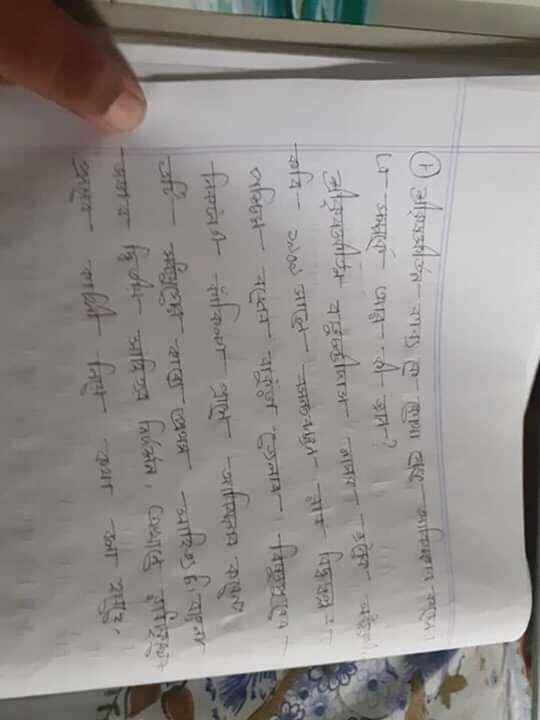 ① শ্রীকৃষ্ণকীর্তন কাব্য কে কোথা থেকে আবিষ্কার করেন।
এ সম্পর্কে আর কী জান?
শ্রীকৃষ্ণকীর্তন বড়ুচণ্ডীদাস নামক
কবি- ১৯০৯ সালে বসন্তরঞ্জন রায় বিদ্বদ্বল্লভ
পশ্চিম বঙ্গের বাকুড়া জেলার বিষ্ণুপুরের
নিকটবর্তী কাঁকিল্যা গ্রামে আবিষ্কার করেন
এটি মধ্যযুগের কাব্যে প্রথম সাহিত্য ও বাংলা
ভাষার দ্বিতীয় সাহিত্যের নিদর্শন, এখানে রাধাকৃষ্ণের
প্রেমের কাহিনী নিয়ে কথা বলা হয়েছে,